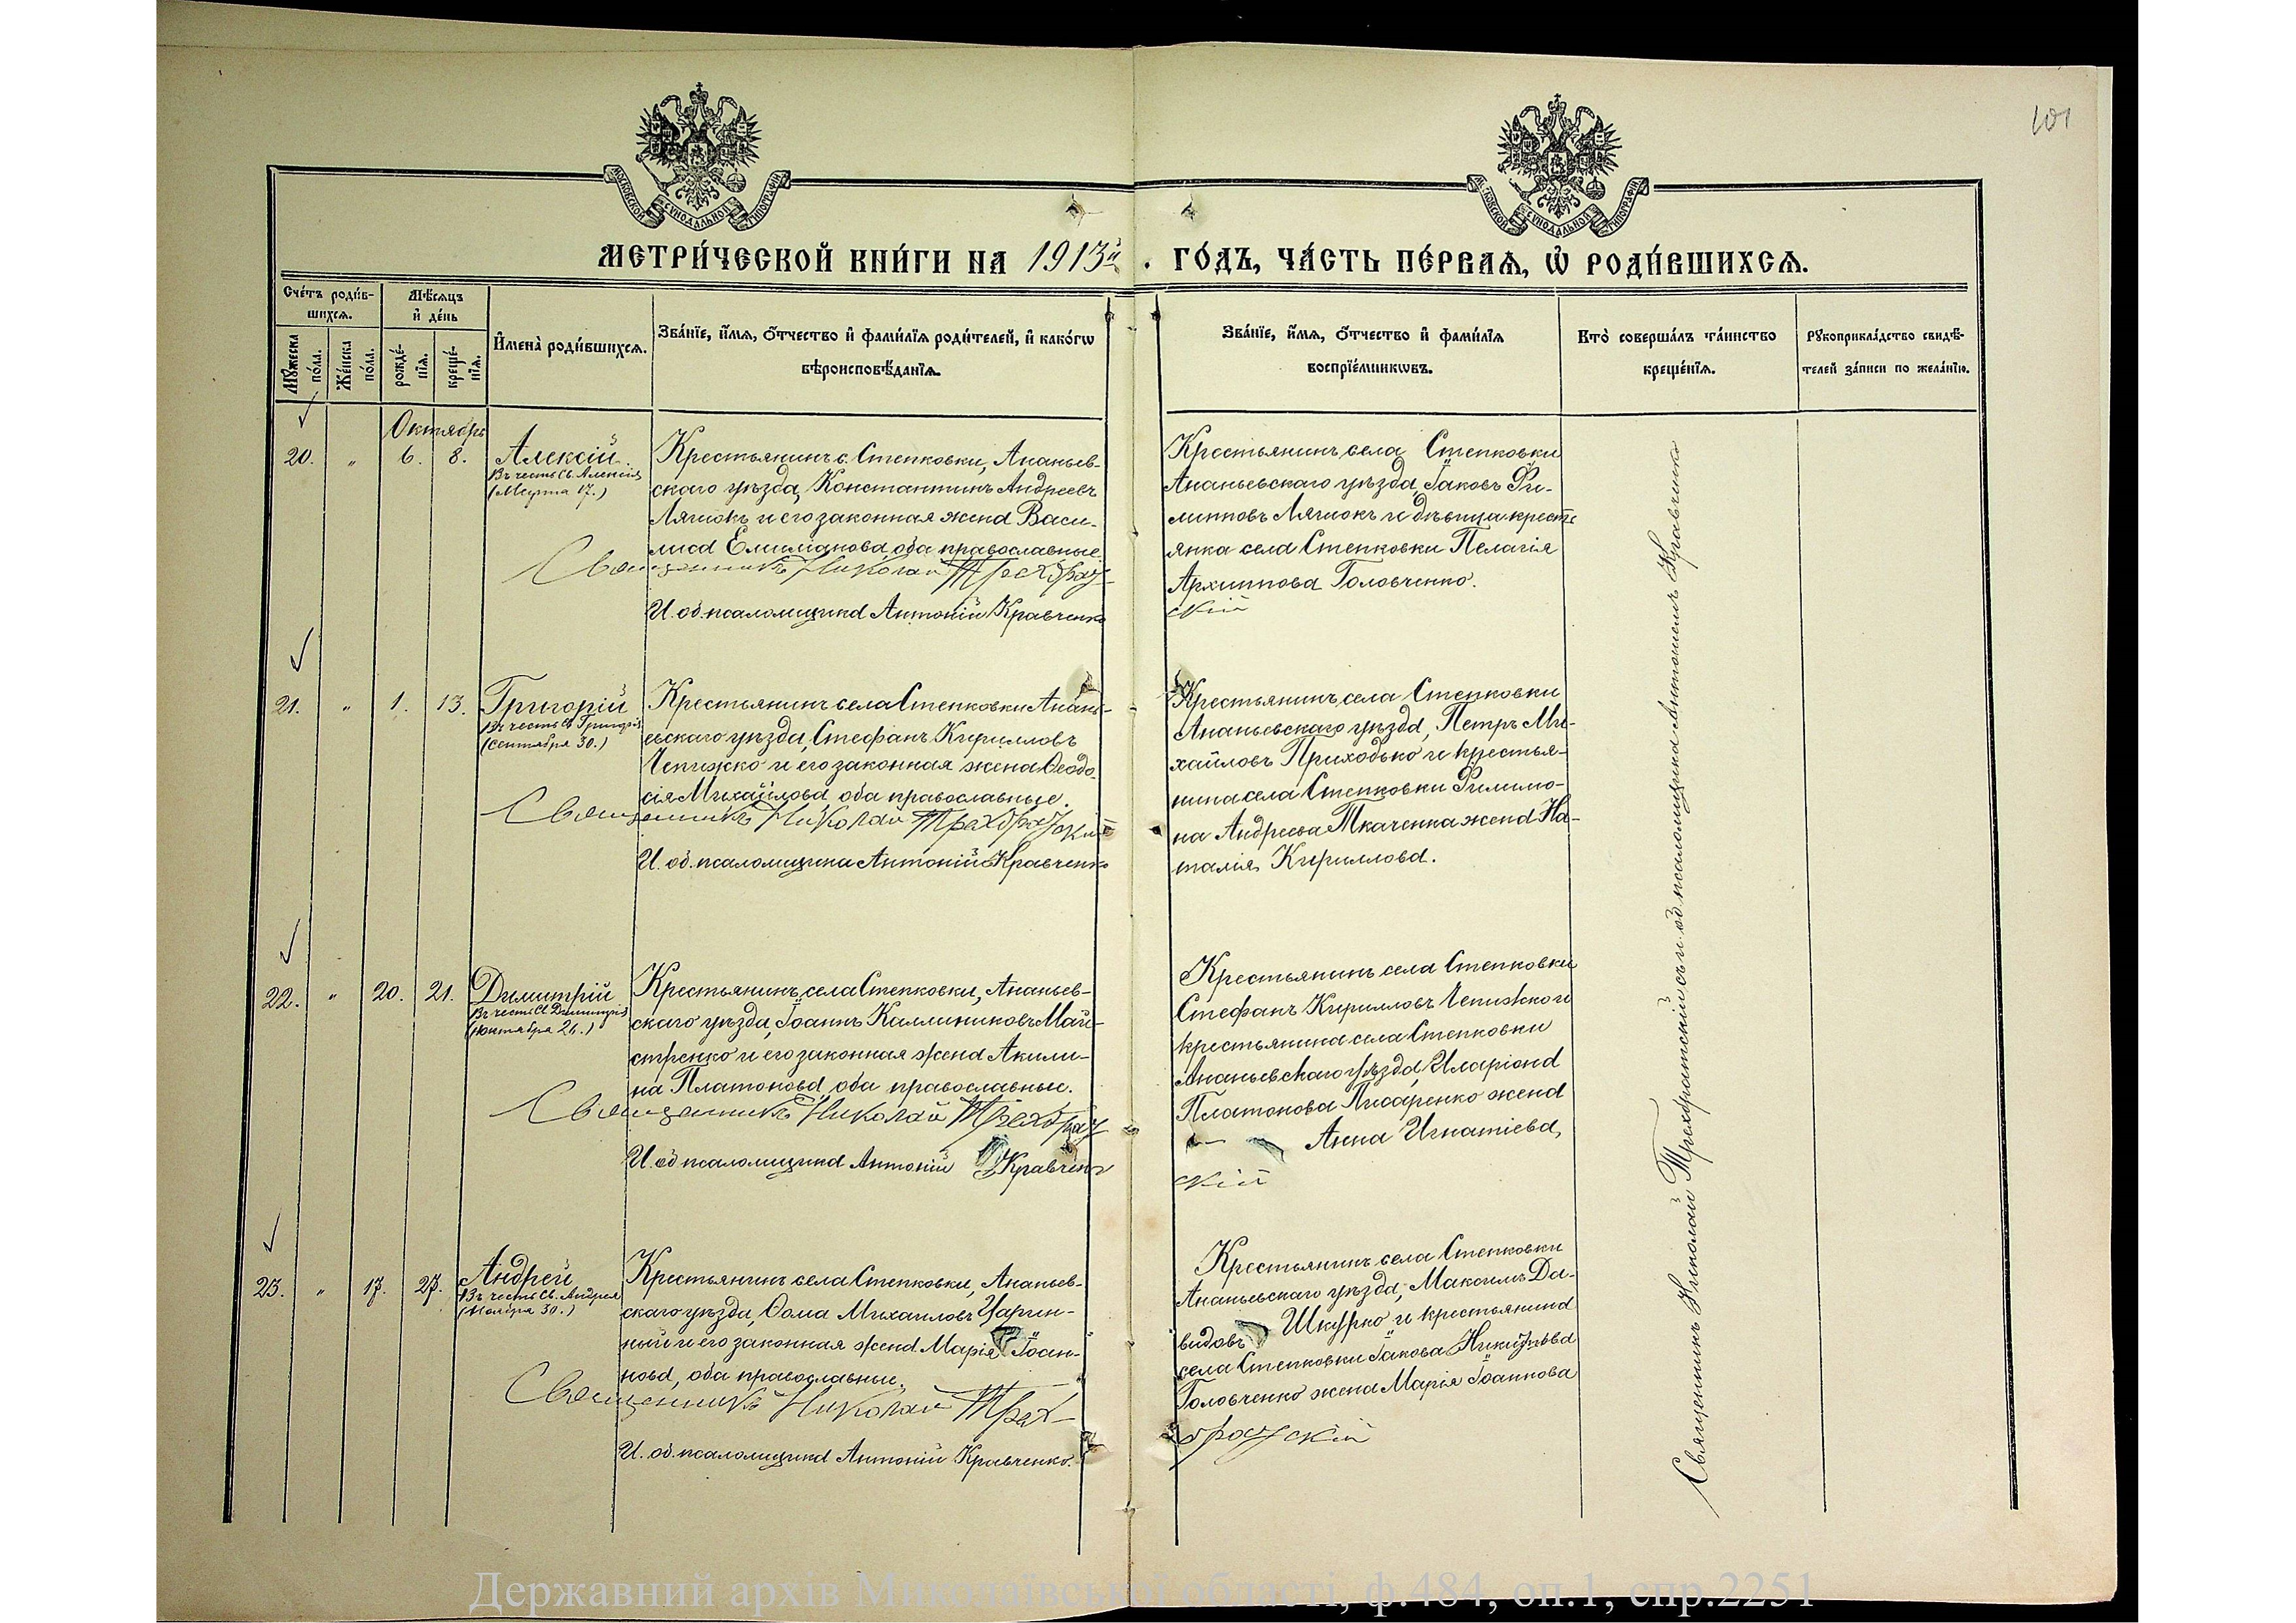 101
МОСКОВСКОЙ СѴНОДАЛЬНОЙ ТИПОГРАФІИ
МОСКОВСКОЙ СѴНОДАЛЬНОЙ ТИПОГРАФІИ
МЕТРИ́ЧЕСКОЙ КНИ́ГИ НА 1913й. ГО́ДЪ, ЧА́СТЬ ПЕ́РВАѦ, Ѡ҆ РОДИ́ВШИХСѦ.
Сче́тъ роди́в-
шихсѧ.
Мꙋ́жеска по́ла.
Же́нска по́ла.
Мѣ́сѧцъ
и҆ де́нь
рожде́-
нїѧ.
креще́-
нїѧ.
И҆мена̀ роди́вшихсѧ.
Зва́нїе, и҆́мѧ, ѻ҆́тчество и҆ фами́лїѧ роди́телей, и҆ како́гѡ
вѣроисповѣ́данїѧ.
Зва́нїе, и҆́мѧ, ѻ҆́тчество и҆ фами́лїѧ
воспрїе́мникѡвъ.
Кто̀ соверша́лъ та́инство
креще́нїѧ.
Рꙋкоприкла́дство свидѣ́-
телей за́писи по жела́нїю.
Октябрь
20. " 6. 8. Алексій
Въ честь Св. Алексія
(Марта 17.)
Крестьянинъ с. Степковки, Ананьев-
скаго уѣзда, Константинъ Андреевъ
Ляшокъ и его законная жена Васи-
лиса Емиліанова, оба православные.
Священникъ Николай Трехбраτ-
И. об. псаломщика Антоній Кравченко
Крестьянинъ села Степковки
Ананьевскаго уѣзда, Іаковъ Фи-
липповъ Ляшокъ и дѣвица крестъ
янка села Степковки Пелагія
Архиппова Головченко.
скій
21. " 1. 13. Григорій
Въ честь Св. Григорія
(Сентября 30.)
Крестьянинъ села Степковки Анань-
евскаго уѣзда, Стефанъ Кирилловъ
Чепижко и его законная жена Ѳеодо-
сія Михайлова, оба православные.
Священникъ Николай Трехбратскій
И. об. псаломщика Антоній Кравченко
Крестьянинъ села Степковки
Ананьевскаго уѣзда, Петръ Ми-
хайловъ Приходько и крестья-
нина села Степковки Филимо-
на Андреева Ткаченка жена На-
талія Кириллова.
22. " 20. 21. Димитрій
Въ честь Св. Димитрія
(Октября 26.)
Крестьянинъ села Степковки, Ананьев-
скаго уѣзда, Іоаннъ Каллиниковъ Май-
стренко и его законная жена Акили-
на Платонова, оба православные.
Священникъ Николай Трехбрат
И. об. псаломщика Антоній Кравченко
Крестьянинъ села Степковки
Стефанъ Кирилловъ Чепижко и
крестьянина села Степковки
Ананьевскаго уѣзда, Иларіона
Платонова Писаренко жена
Анна Игнатіева,
скій
23. " 17. 27. Андрей
Въ честь Св. Андрея
(Ноября 30.)
Крестьянинъ села Степковки, Ананьев-
скаго уѣзда, Ѳома Михаиловъ Царин-
ный и его законная жена Марія Іоан-
нова, оба православные.
Священникъ Николай Трех-
И. об. псаломщика Антоній Кравченко.
Крестьянинъ села Степковки
Ананьевскаго уѣзда, Максимъ Да-
видовъ Шкурко и крестьянина
села Степковки Іакова
Головченко жена Марія Іоаннова
братскій
Священникъ Николай Трехбратскій съ и. об. псаломщика Антоніемъ Кравченко
Державний архів Миколаївської області, ф.484, оп.1, спр.2251